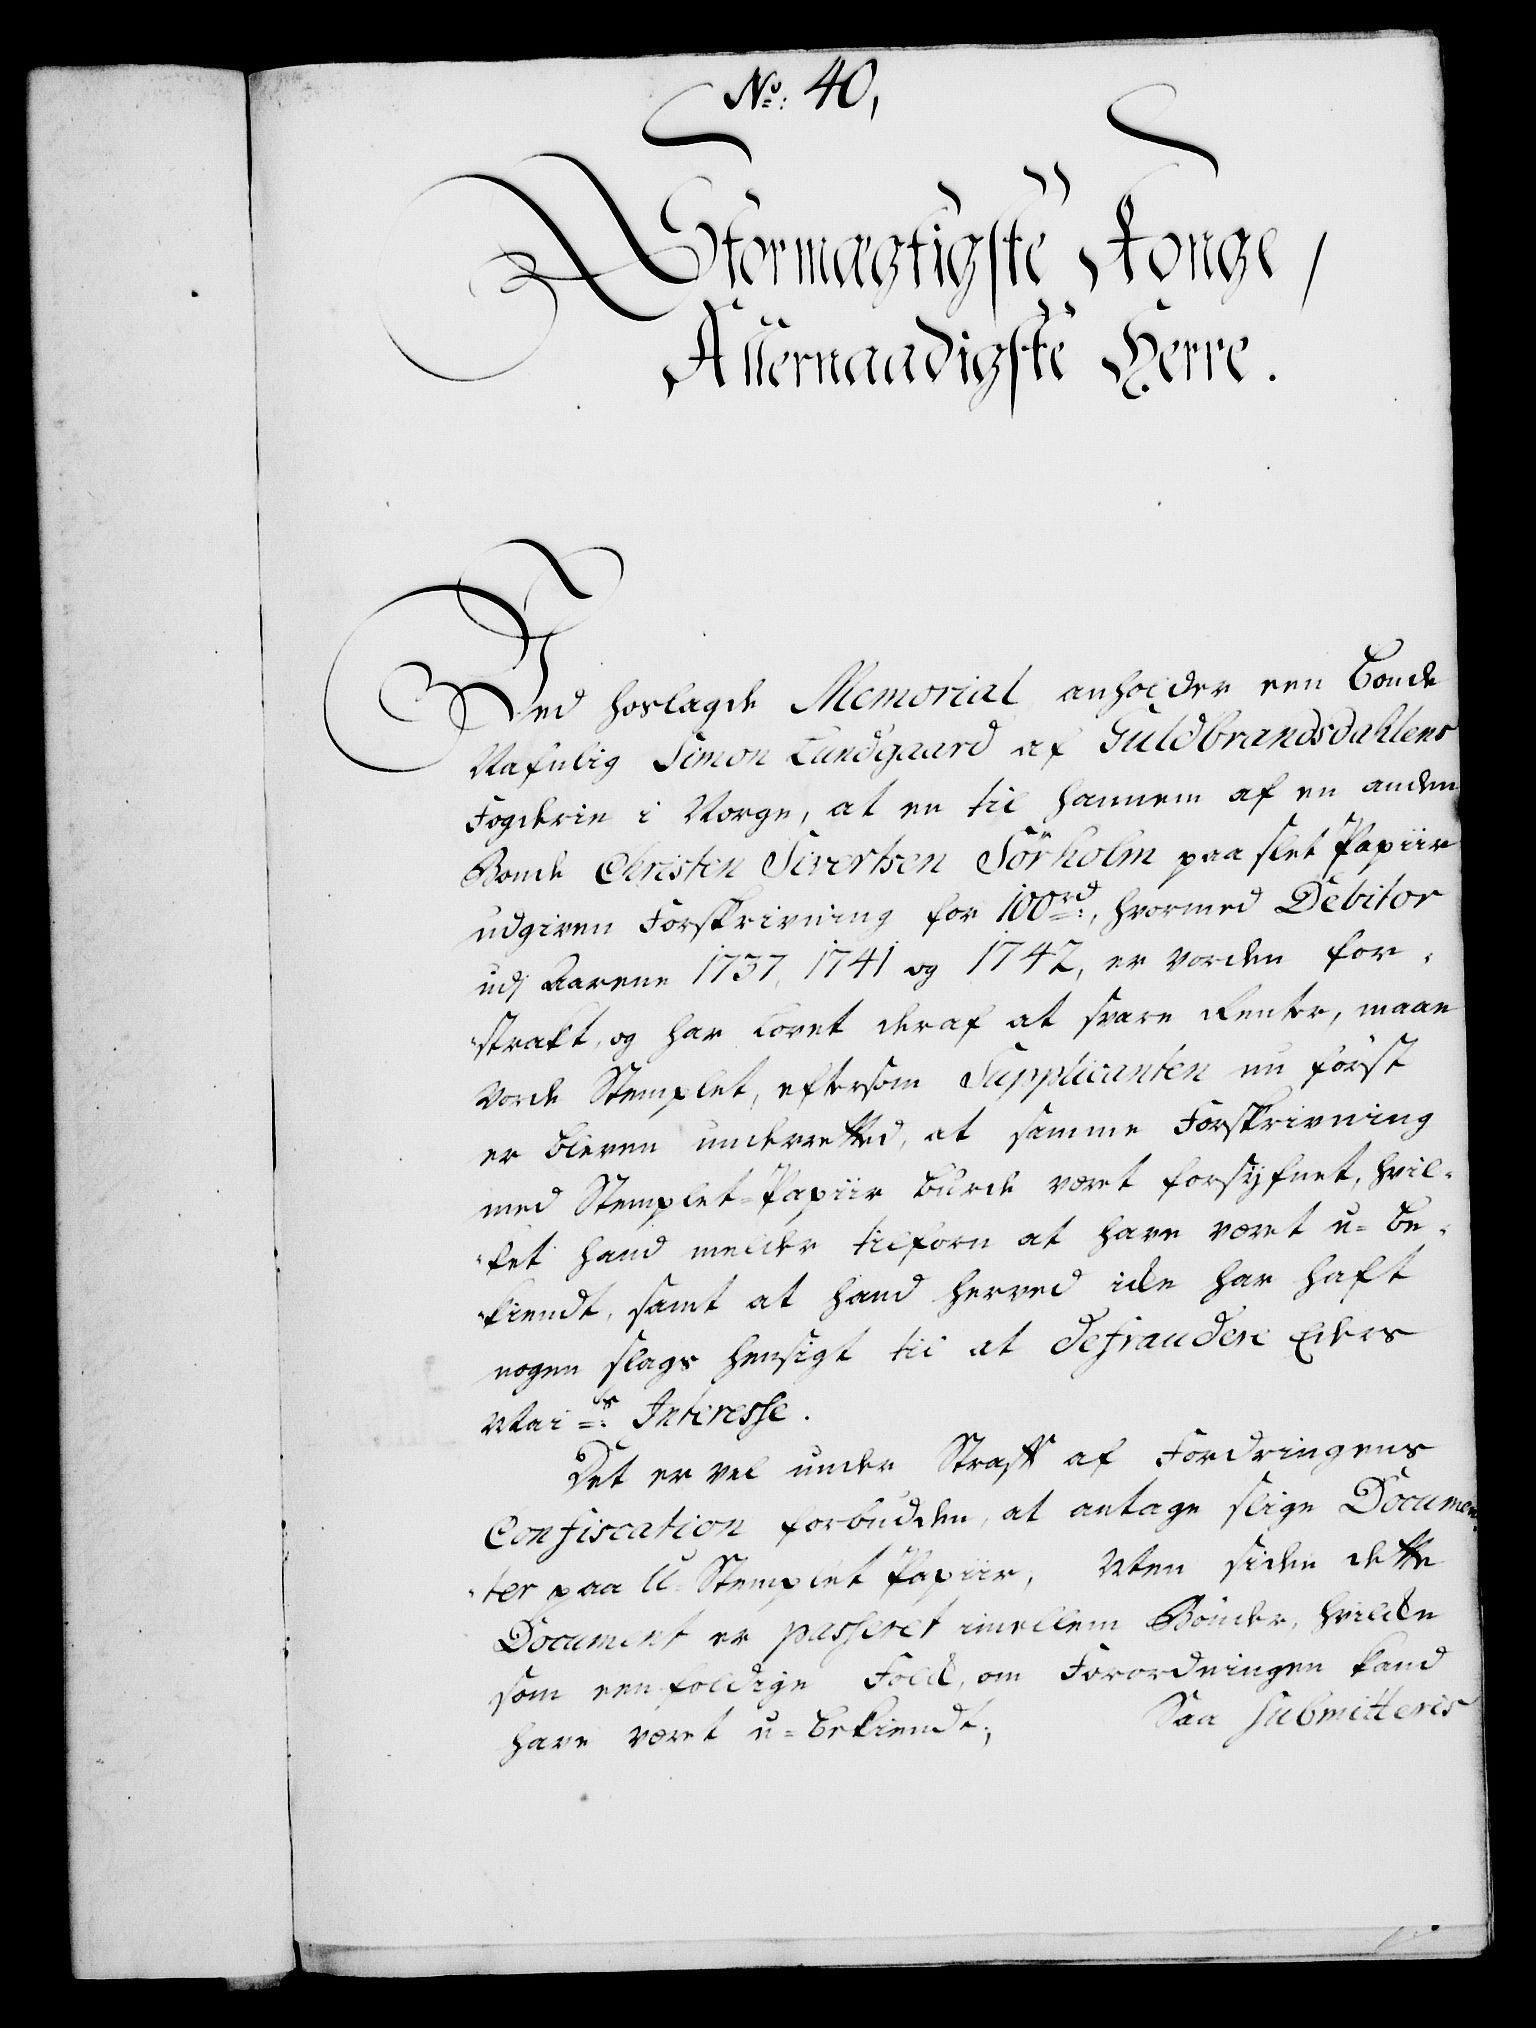 No: 40,
Stormægtigste Konge,
Allernaadigste Herre.
Ved hoslagde Memorial anholder een Bonde
Nafnlig Simon Lundgaard af Guldbrandsdahlens
Fogderie i Norge, at en til hannem af en anden
Bonde Christen Sivertsen Sörholm paa slet Papiir
udgiven Forskrivning for 100rd:, hvormed Debitor
udj Aarene 1737, 1741 og 1742, er vorden for-
strakt, og har lovet deraf at svare Renter, maae
vorde Stemplet, eftersom Supplicanten nu först
er bleven underretted, at samme Forskrivning
med Stemplet-Papiir burde været forsÿfnet, hvil-
ket hand melder tilforn at have været u-be-
kiendt, samt at hand herved icke har haft
nogen slags hensigt til at defraudere Eders
Mai:ts Interesse.
Det er vel under Straff af Fordringens
Confiscation forbudden, at antage slige Documen-
ter paa U-Stemplet Papiir, Men siden dette
Document er passeret imellem Bönder, hvilcke
som eenfoldige Folck, om Forordningen kand
have været u-bekiendt;
Saa submitteris